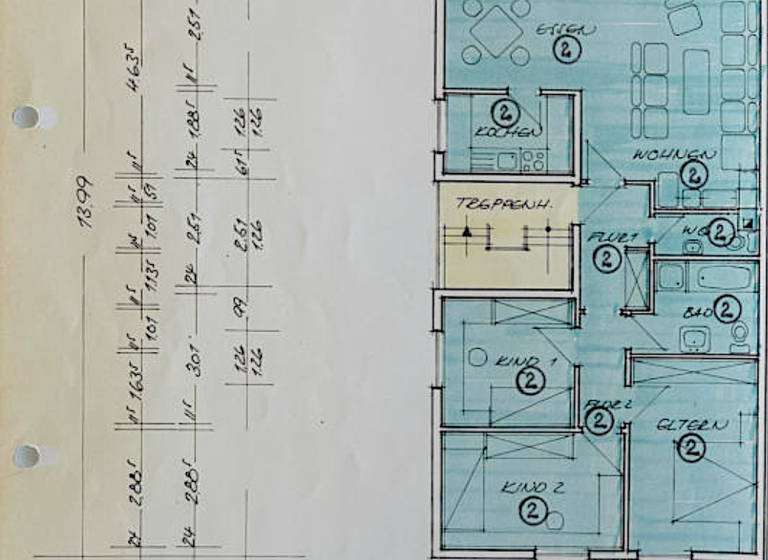 ESSEN
2
2
KOCHEN
WOHNEN
2
TREPPENH.
WC 2
FLUR 1
2
BAD 2
KIND 1
2
FLUR 2
2
ELTERN
2
KIND 2
2
13.99
4.63⁵
11⁵
11⁵
51
11⁵
1.01
11⁵
1.13⁵
11⁵
1.01
11⁵
1.63⁵
11⁵
2.88⁵
24
2.51
11⁵
1.88⁵
24
2.61
24
3.01
11⁵
2.88⁵
24
1.26
1.26
61⁵
2.61
1.26
99
1.26
1.26